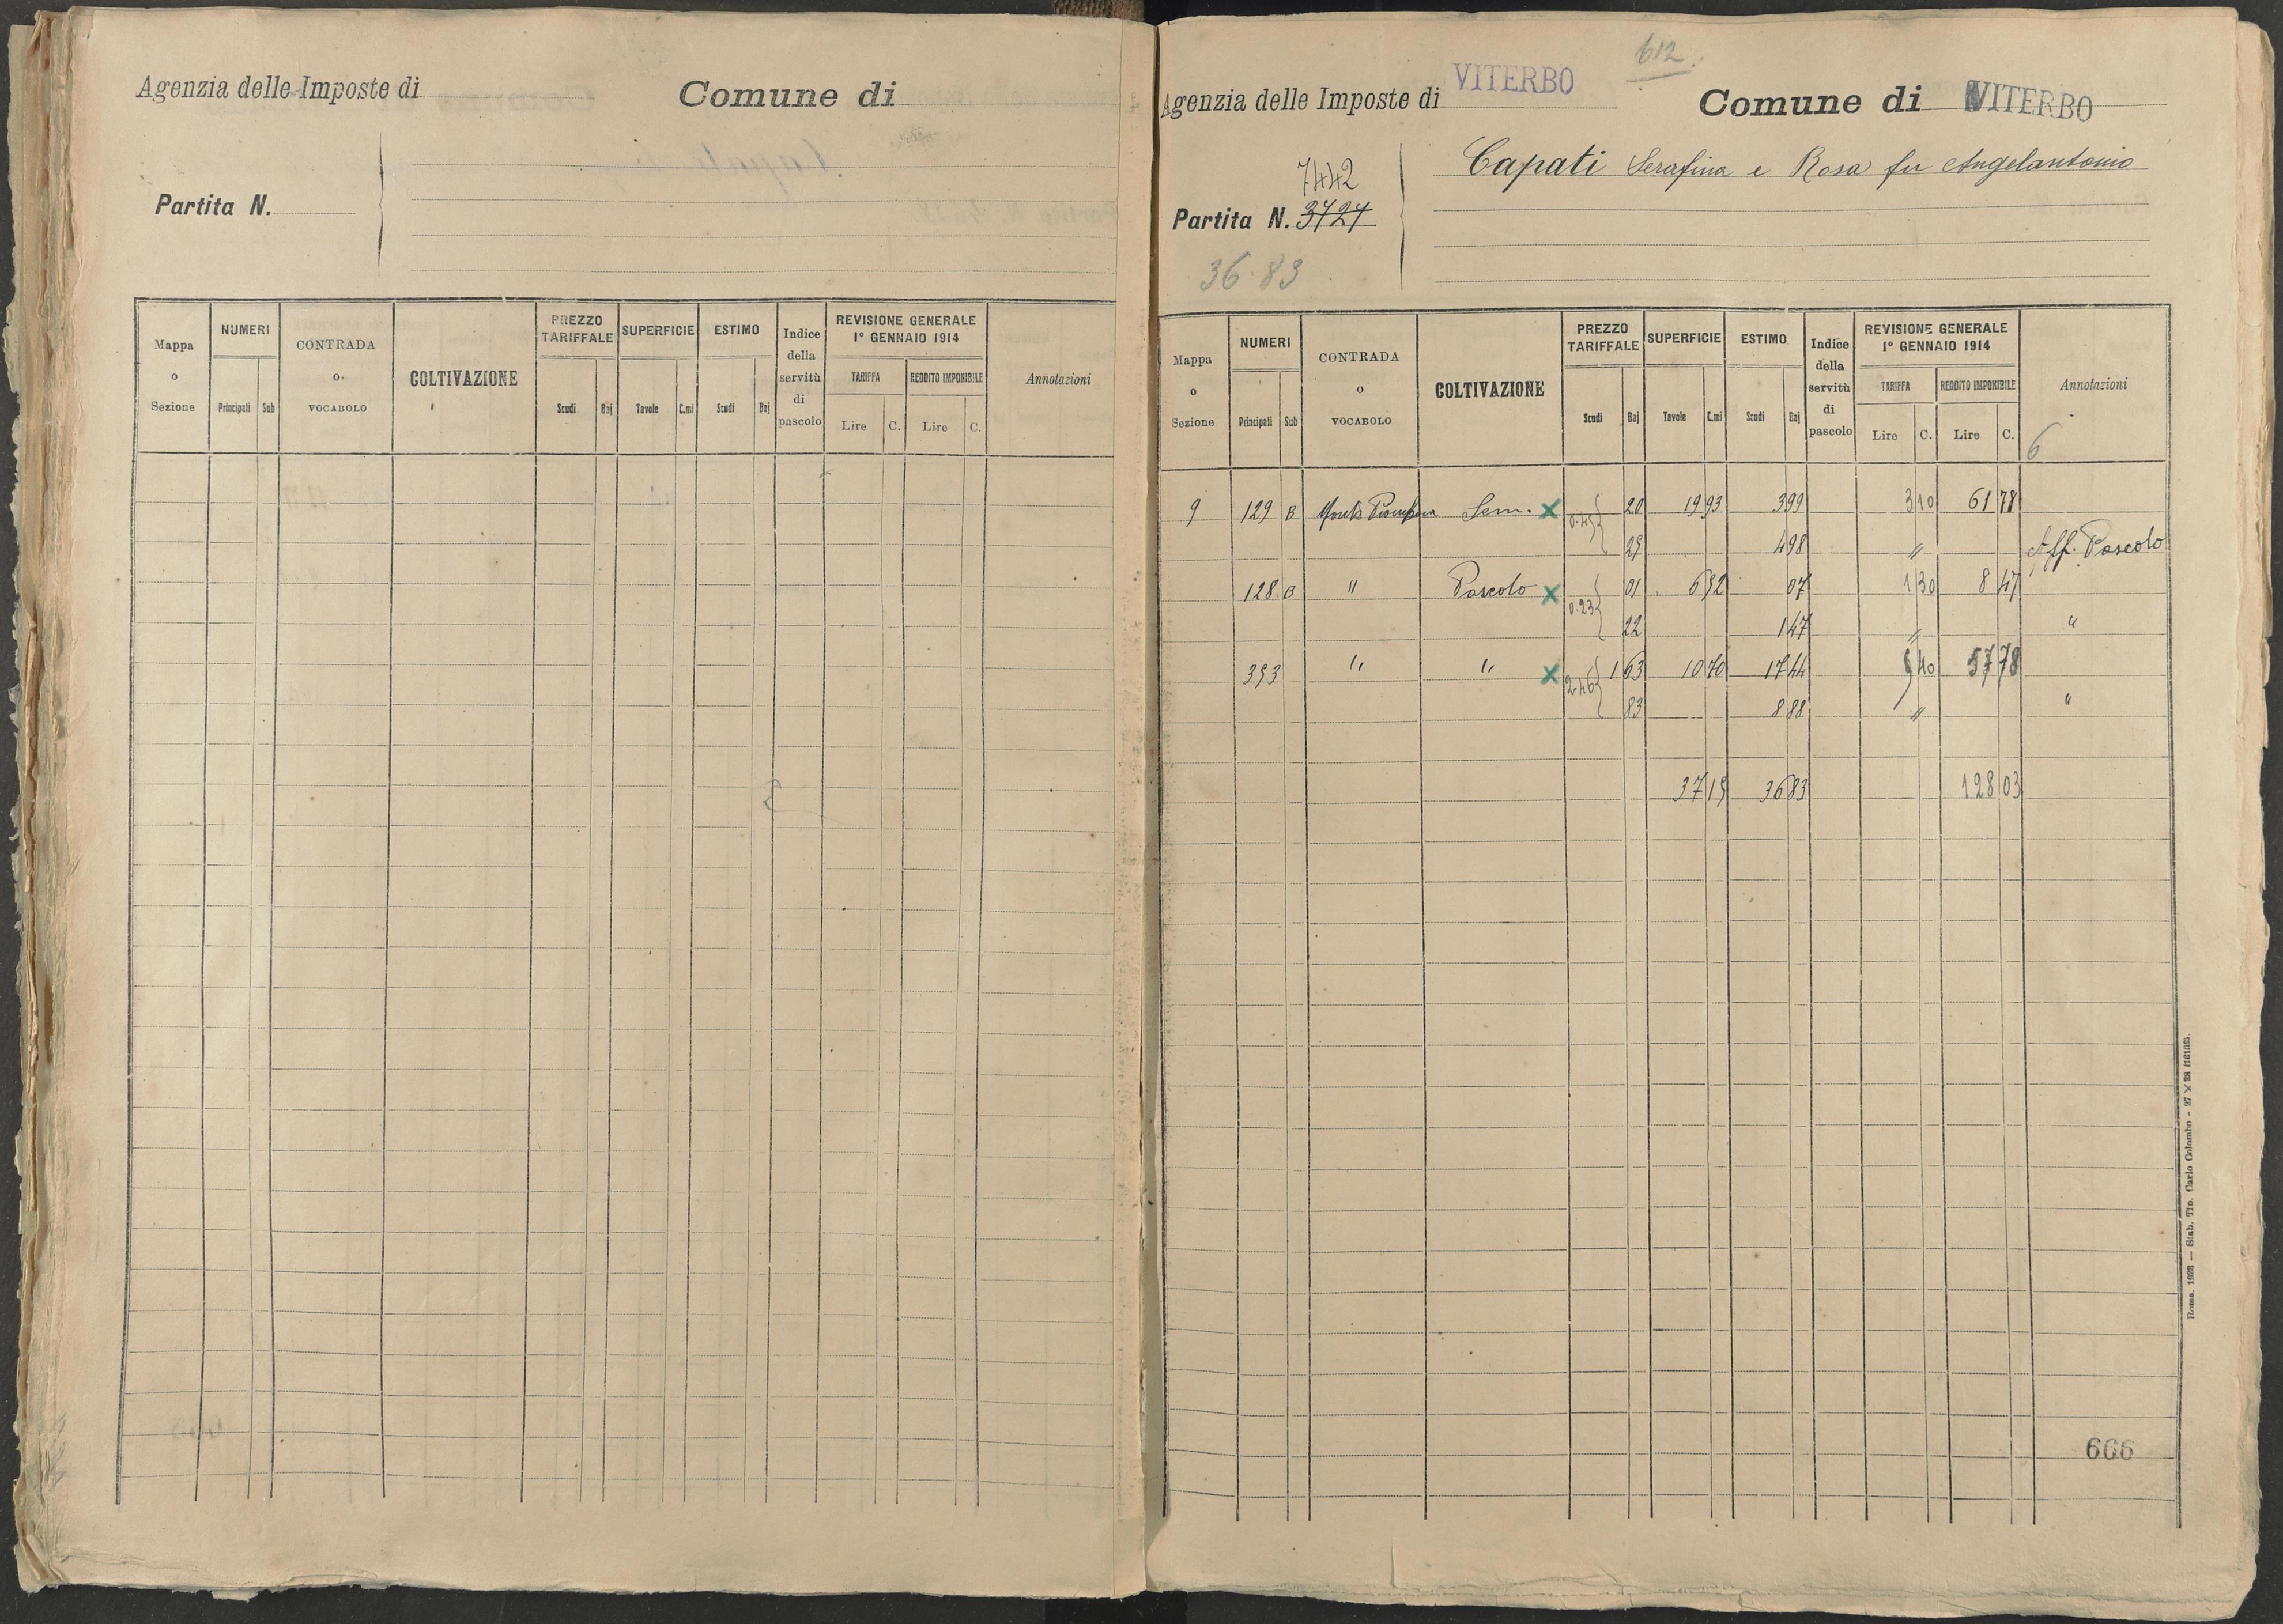 Agenzia delle Imposte di
Comune di
Partita N.
Mappa o Sezione
NUMERI
Principali Sub
CONTRADA o VOCABOLO
COLTIVAZIONE
PREZZO TARIFFALE
Scudi Baj
SUPERFICIE
Tavole C.mi
ESTIMO
Scudi Baj
Indice della servitù di pascolo
REVISIONE GENERALE 1° GENNAIO 1914
TARIFFA
Lire C.
REDDITO IMPONIBILE
Lire C.
Annotazioni
612
Agenzia delle Imposte di VITERBO
Comune di VITERBO
7442
Partita N. 3424
36.83
Capati Serafina e Rosa fu Angelantonio
Mappa o Sezione
NUMERI
Principali Sub
CONTRADA o VOCABOLO
COLTIVAZIONE
PREZZO TARIFFALE
Scudi Baj
SUPERFICIE
Tavole C.mi
ESTIMO
Scudi Baj
Indice della servitù di pascolo
REVISIONE GENERALE 1° GENNAIO 1914
TARIFFA
Lire C.
REDDITO IMPONIBILE
Lire C.
Annotazioni
6
9 129 B Sem. x 0.45 20 19 93 3 99 3 10 61 78
25 4 98 " Aff. Pascolo
128 B " Pascolo x 0.23 01 6 52 07 1 30 8 47
22 1 47 " "
353 " " x 2.46 1 63 10 70 17 44 5 40 57 78
83 8 88 " "
37 15 36 83 128 03
666
Roma, 1923 — Stab. Tip. Carlo Colombo